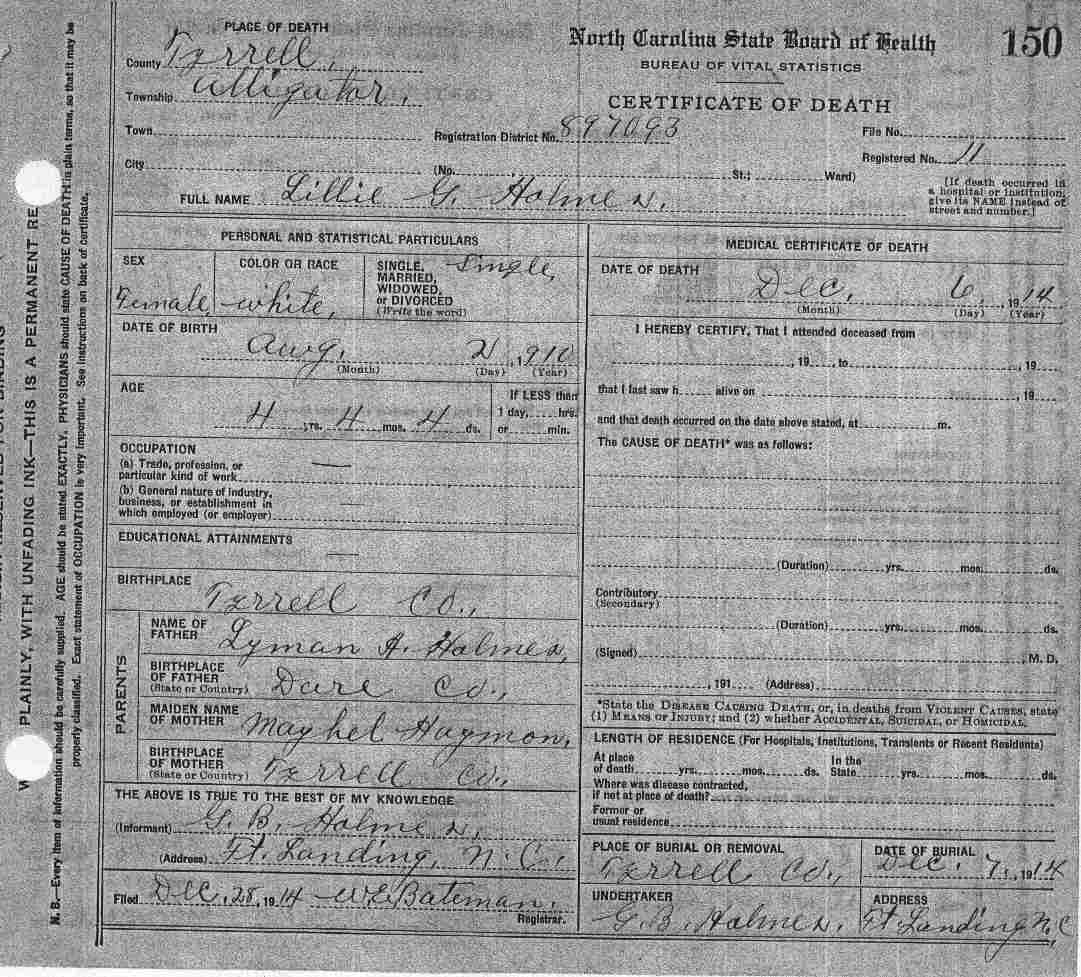 PLACE OF DEATH
County Tyrrell,
Township Alligator.
Town
City
North Carolina State Board of Health
150
BUREAU OF VITAL STATISTICS
CERTIFICATE OF DEATH
Registration District No. 897093
File No.
Registered No. 11
(No. St.; Ward)
[If death occurred in
a hospital or institution,
give its NAME instead of
street and number.]
FULL NAME Lillie G. Holmes.
PERSONAL AND STATISTICAL PARTICULARS
SEX
Female,
COLOR OR RACE
white,
SINGLE, Single,
MARRIED,
WIDOWED,
or DIVORCED
(Write the word)
DATE OF BIRTH
Aug. 2, 1910
(Month) (Day) (Year)
AGE
4 yrs. 4 mos. 4 ds.
If LESS than
1 day, hrs.
or min.
OCCUPATION
(a) Trade, profession, or
particular kind of work
(b) General nature of industry,
business, or establishment in
which employed (or employer)
EDUCATIONAL ATTAINMENTS
BIRTHPLACE
Tyrrell Co.,
PARENTS
NAME OF
FATHER Lyman A. Holmes,
BIRTHPLACE
OF FATHER
(State or Country) Dare Co.,
MAIDEN NAME
OF MOTHER Maybel Haymon,
BIRTHPLACE
OF MOTHER
(State or Country) Tyrrell Co.,
THE ABOVE IS TRUE TO THE BEST OF MY KNOWLEDGE
(Informant) G. B. Holmes,
(Address) Ft. Landing, N. C.
Filed Dec. 28, 1914 W.E. Bateman.
Registrar.
MEDICAL CERTIFICATE OF DEATH
DATE OF DEATH
Dec. 6, 1914
(Month) (Day) (Year)
I HEREBY CERTIFY, That I attended deceased from
, 19 , to , 19
that I last saw h alive on , 19
and that death occurred on the date above stated, at m.
The CAUSE OF DEATH* was as follows:
(Duration) yrs. mos. ds.
Contributory
(Secondary)
(Duration) yrs. mos. ds.
(Signed) , M. D.
, 191 (Address)
*State the DISEASE CAUSING DEATH, or, in deaths from VIOLENT CAUSES, state
(1) MEANS OF INJURY; and (2) whether ACCIDENTAL, SUICIDAL, or HOMICIDAL.
LENGTH OF RESIDENCE (For Hospitals, Institutions, Transients or Recent Residents)
At place In the
of death yrs. mos. ds. State yrs. mos. ds.
Where was disease contracted,
if not at place of death?
Former or
usual residence
PLACE OF BURIAL OR REMOVAL
Tyrrell Co.,
DATE OF BURIAL
Dec. 7., 1914
UNDERTAKER
G. B. Holmes.
ADDRESS
Ft. Landing N. C
PLAINLY, WITH UNFADING INK—THIS IS A PERMANENT RE
N. B.—Every item of information should be carefully supplied. AGE should be stated EXACTLY. PHYSICIANS should state CAUSE OF DEATH in plain terms, so that it may be
properly classified. Exact statement of OCCUPATION is very important. See instructions on back of certificate.